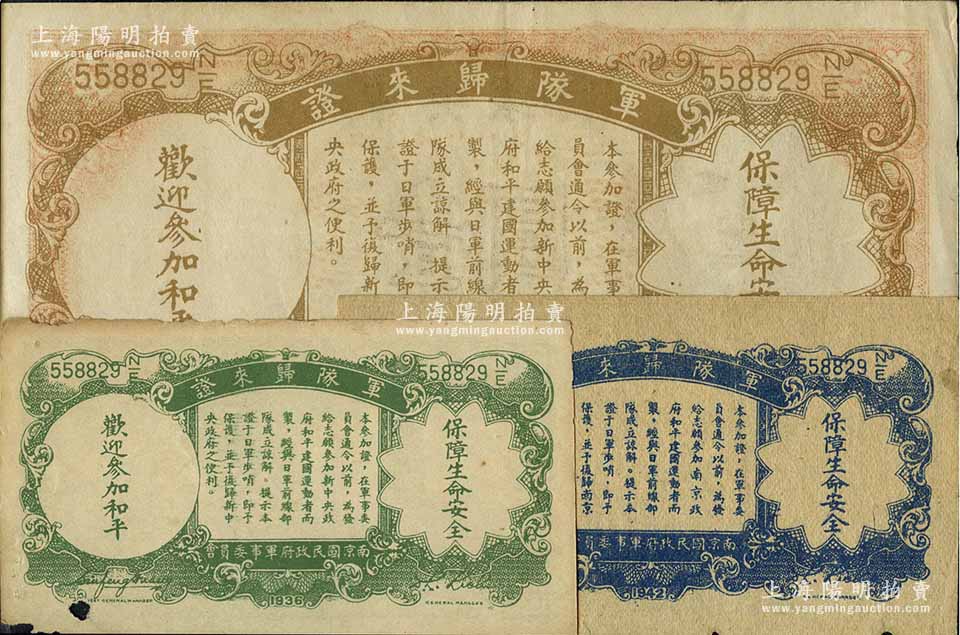 上海陽明拍賣
www.yangmingauction.com
558829 N/E
558829 N/E
軍隊歸來證
保障生命安
本參加證，在軍事
員會通令以前，為
給志願參加新中央
府和平建國運動者
製，經與日軍前線
隊成立諒解。提示
證于日軍步哨，即
保護，並予復歸新
央政府之便利。
歡迎參加和平
上海陽明拍賣
www.yangmingauction.com
558829 N/E
558829 N/E
軍隊歸來證
保障生命安全
本參加證，在軍事委
員會通令以前，為發
給志願參加新中央政
府和平建國運動者而
製，經與日軍前線部
隊成立諒解。提示本
證于日軍步哨，即予
保護，並予復歸新中
央政府之便利。
歡迎參加和平
南京國民政府軍事委員會
1936
GENERAL MANAGER
558829 N/E
軍隊歸來
保障生命安全
本參加證，在軍事委
員會通令以前，為發
給志願參加南京政
府和平建國運動者而
製，經與日軍前線部
隊成立諒解。提示本
證于日軍步哨，即予
保護，並予復歸南京
南京國民政府軍事委員
GENERAL MANAGER
上海陽明拍賣
www.yangmingauction.com